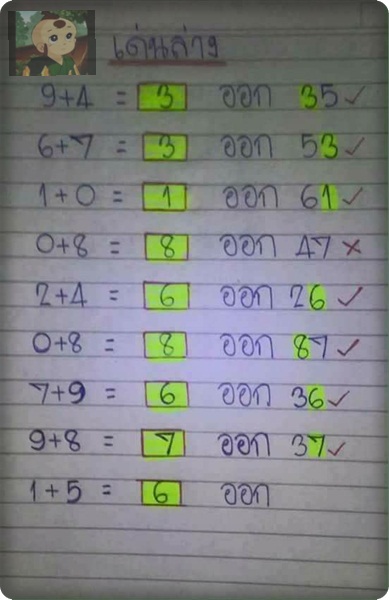 เด่นล่าง
9+4 = 3 ออก 35 ✓
6+7 = 3 ออก 53 ✓
1+0 = 1 ออก 61 ✓
0+8 = 8 ออก 47 ✗
2+4 = 6 ออก 26 ✓
0+8 = 8 ออก 87 ✓
7+9 = 6 ออก 36 ✓
9+8 = 7 ออก 37 ✓
1+5 = 6 ออก